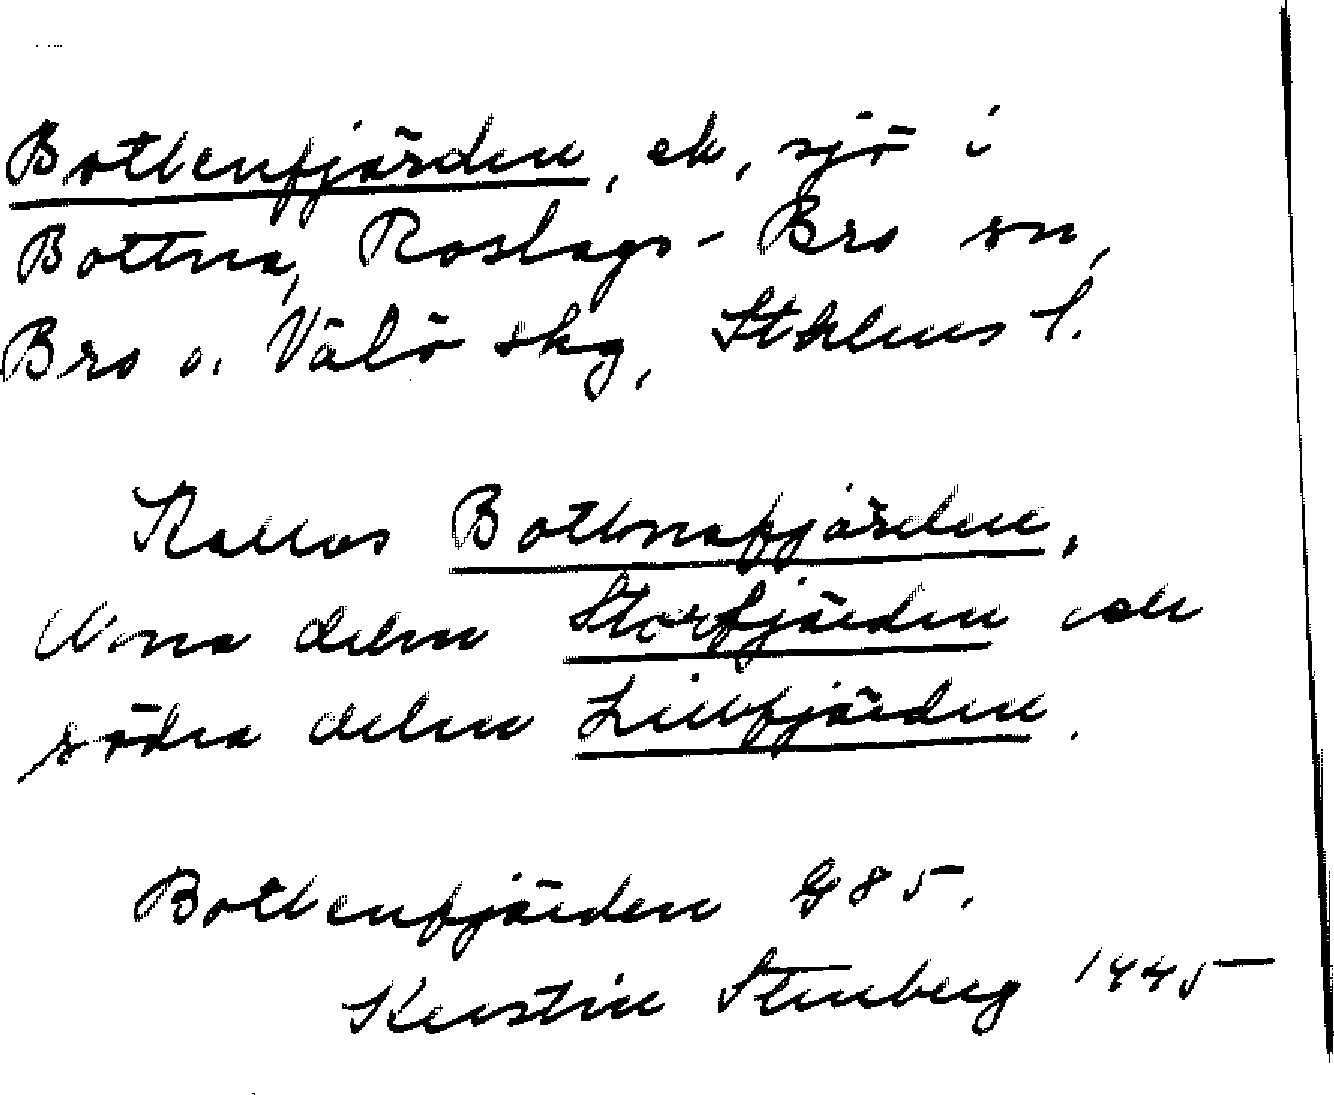 Bottenfjärden, ek, sjö i
Bottna, Roslags-Bro sn,
Bro o. Välö skg, Sthlms l.
Kallas Bottnafjärden,
Norra delen Storfjärden och
södra delen Lillfjärden.
Bottenfjärden GJ 85.
Kerstin Stenberg 1945